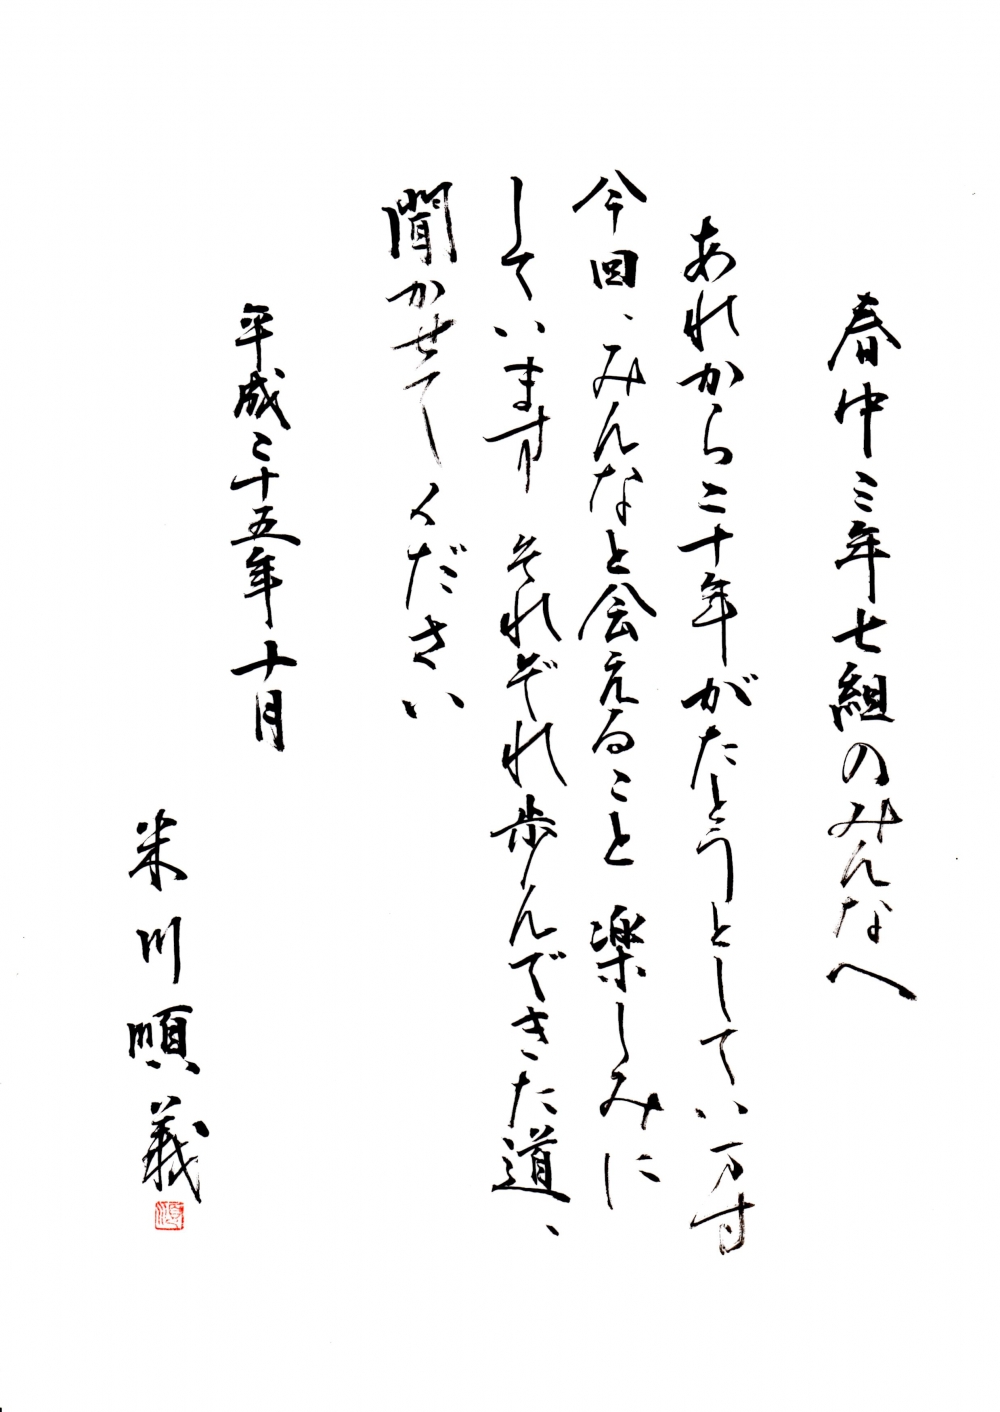 春中三年七組のみんなへ
あれから二十年がたとうとしています
今回、みんなと会えること 楽しみに
しています それぞれ歩んできた道、
聞かせてください
平成二十五年十月
米川順義